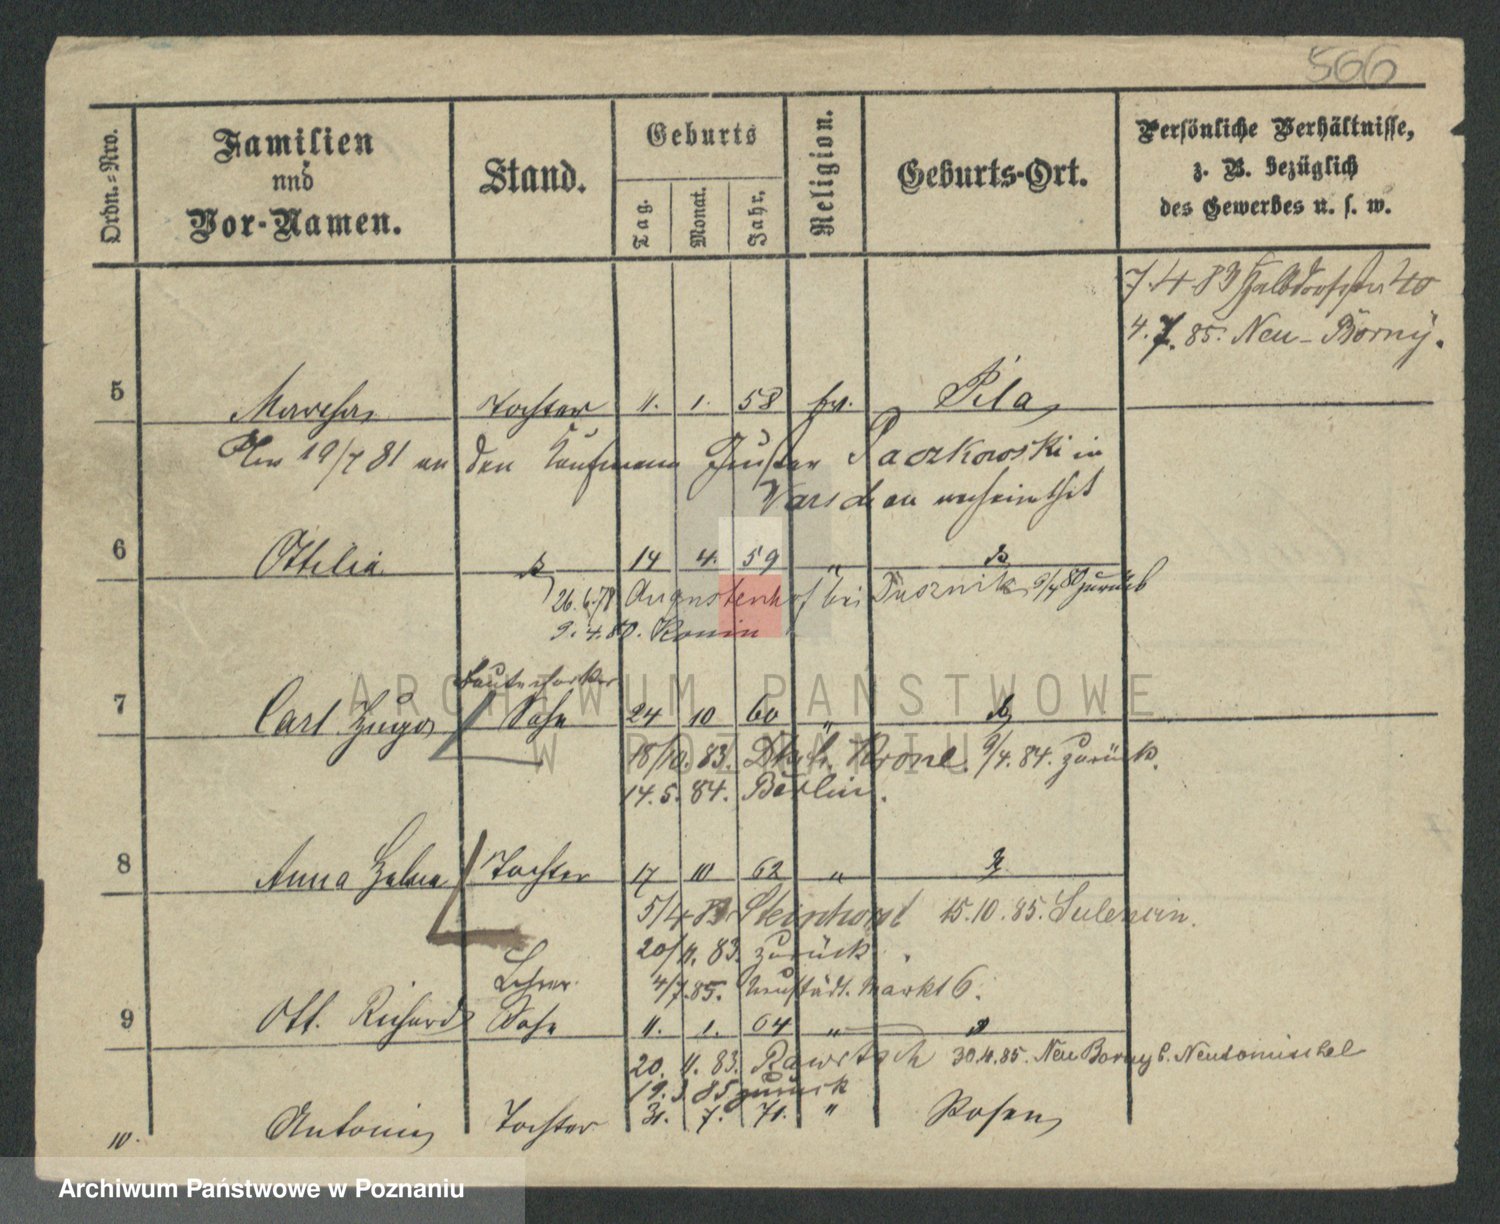 566
Ordn.-Nro.
Familien
und
Vor-Namen.
Stand.
Geburts
Tag.
Monat.
Jahr.
Religion.
Geburts-Ort.
Persönliche Verhältnisse,
z. B. bezüglich
des Gewerbes u. s. w.
7.4 83 Halbdorfstr 40
4.7.85. Neu-Borny.
5 Martha Tochter 11. 1. 58 Pila
19/7 81 an den Kaufmann Gustav Paczkowski in
Warschau verheirathet
6 Ottilia 14 4. 59 "
26.6.78 Augustenhof bei Dusznik 9/4 80 zurück
9.4.80. Konin
7 Carl Hugo Sohn 24 10 60 "
18/10.83. Dtsch. Krone. 9/4.84. zurück.
14.5.84. Berlin.
8 Anna Helene Tochter 17 10 62 "
5/4 83 Steinhorst 15.10.85. Sulencin.
20/11.83. zurück.
Lehrer
4/7.85. Neustädt. Markt 6.
9 Ott. Richard Sohn 11. 1. 64 "
20. 11. 83. Rawitsch 30.4.85. Neu Borny b. Neutomischel
19.3.85 zurück
10. Antonie Tochter 31. 7. 71. " Posen
ARCHIWUM PAŃSTWOWE
W POZNANIU
Archiwum Państwowe w Poznaniu